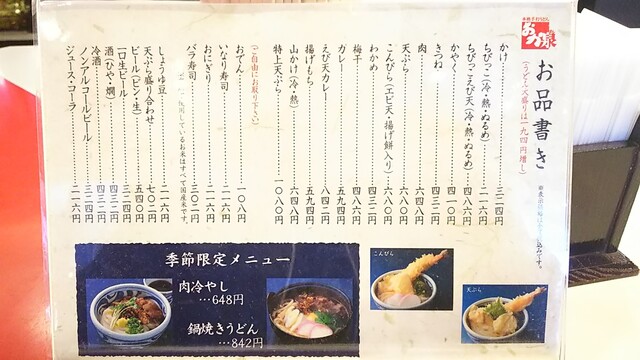 お品書き
（うどん大盛りは一九四円増し）
かけ 三二四
ちびっこ（冷・熱・ぬるめ） 二一六
ちびっこえび天（冷・熱・ぬるめ） 四八六
かやく 四一〇
きつね 四三二
肉 六四八
天ぷら 七〇〇
こんぴら（エビ天・揚げ餅入り） 六四八
わかめ 四三二
梅干 四八六
カレー 五九四
えび天カレー 八四二
揚げもち 五九四
山かけ（冷・熱） 六四八
特上天ぷら 一〇八〇
（ご自由にお取り下さい）
おでん 一〇八
いなり寿司 二一六
おにぎり 二一六
バラ寿司 三〇〇
使用しているお米はすべて国産米です。
しょうゆ豆 二一六
天ぷら盛り合わせ 七〇二
ビール（ビン・生） 五四〇
一口生ビール 三二四
酒（ひや・燗） 四三二
冷酒 四三二
ノンアルコールビール 三二四
ジュース・コーラ 二一六
季節限定メニュー
肉冷やし
…648円
鍋焼きうどん
…842円
こんぴら
天ぷら